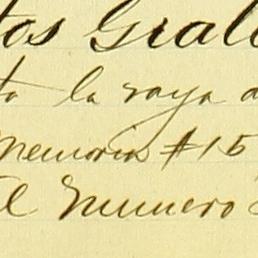 tos Gral
to la raya d
Memoria #15
el numero